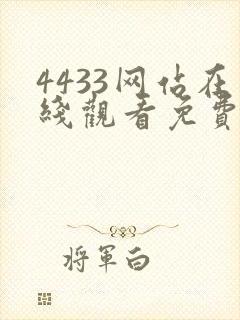 4433网佔在
綫觀看免費
將軍白